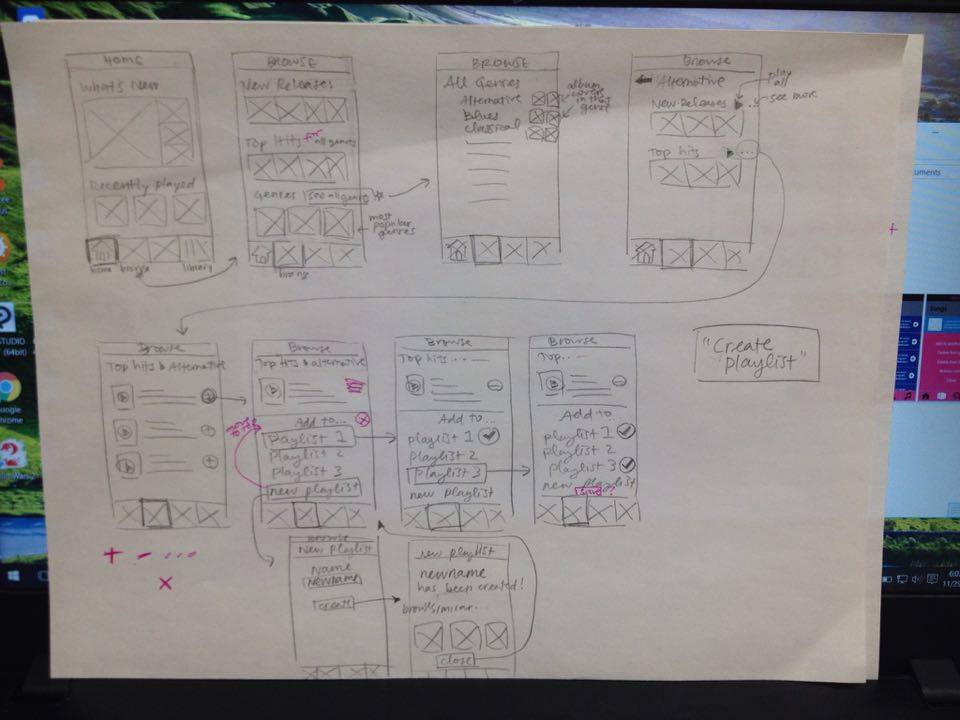 HOME
What's New
Recently played
home
browse
library
BROWSE
New Releases
Top Hits for all genres
Genres (see all genres)
most popular genres
browse
BROWSE
All Genres
Alternative
Blues
classical
album covers in that genre
Browse
Alternative
New Releases
play all
see more
Top hits
Browse
Top hits & Alternative
Browse
Top hits & alternative
move to top
Add to...
Playlist 1
Playlist 2
Playlist 3
new playlist
Browse
Top hits
Add to...
playlist 1
Playlist 2
Playlist 3
new playlist
Browse
Top...
Add to..
playlist 1
playlist 2
playlist 3
new playlist
"Create playlist"
Browse
New Playlist
Name
Newname
create
new playlist
newname
has been created!
browse similar..
close
STUDIO
(64bit)
Google
Chrome
11/29